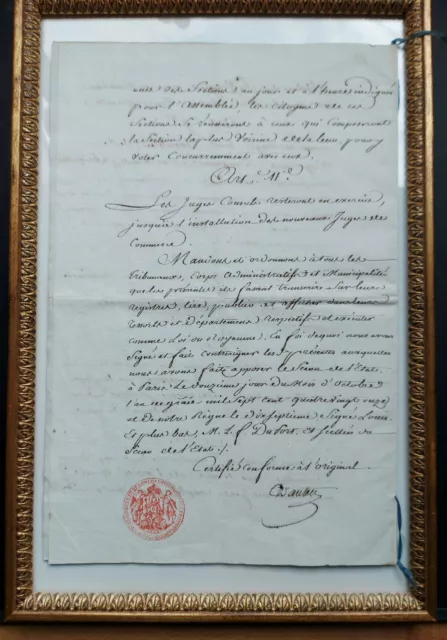 une des Sections au jour et à l'heure indiqué
pour l'Assemblée les citoyens de ces
Sections se réuniront à ceux qui composeront
la Section la plus Voisine de la leur pour y
Voter Concurremment avec eux.
Art. 11.e
Les Juges Consuls resteront en exercice,
jusqu'à l'installation des nouveaux Juges de
Commerce.
Mandons et ordonnons à tous les
Tribunaux, Corps administratifs et Municipalités
que les présentes ils fassent transcrire Sur leurs
registres, lire, publier et afficher dans leurs
ressorts et départemens respectifs et exécuter
comme Loi du Royaume. En foi de quoi nous avons
Signé et fait contresigner les présentes auxquelles
nous avons fait apposer le Sceau de l'Etat.
à Paris Le Douzième jour du Mois d'Octobre
l'an de grâce mil Sept cent quatre vingt onze
et de notre Règne le dixseptième Signé Louis
Et plus bas, M. L. F. DuPort. et Scellées du
Sceau de l'Etat ./.
Certifié Conforme à l'original